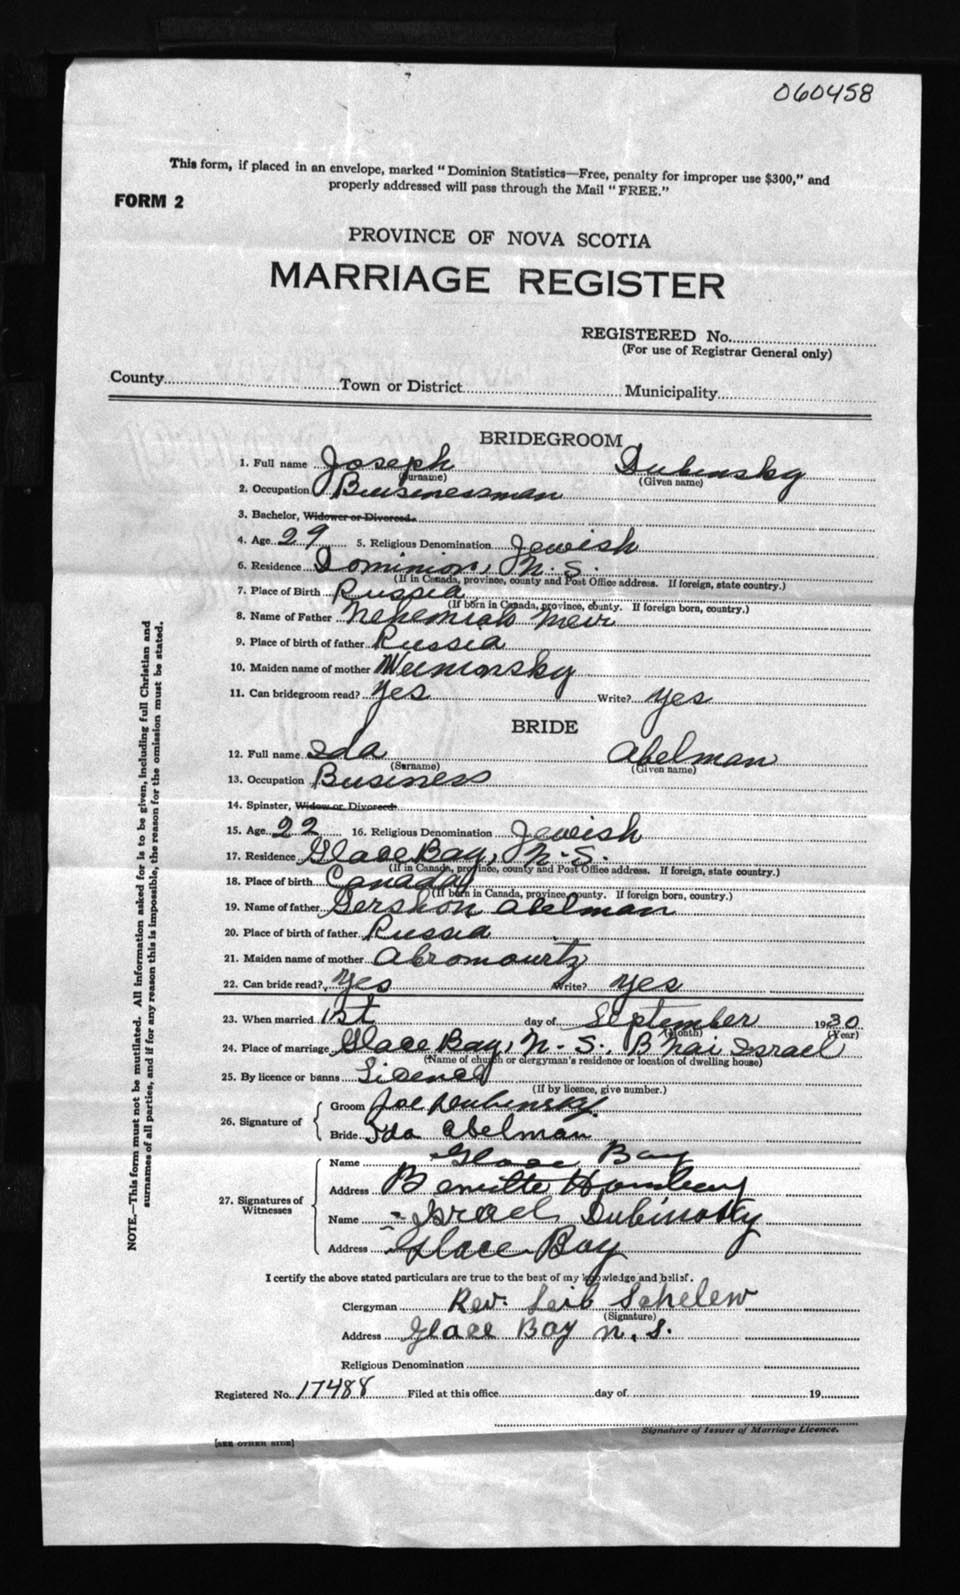 060458
This form, if placed in an envelope, marked "Dominion Statistics—Free, penalty for improper use $300," and
properly addressed will pass through the Mail "FREE."
FORM 2
PROVINCE OF NOVA SCOTIA
MARRIAGE REGISTER
REGISTERED No.
(For use of Registrar General only)
County Town or District Municipality
BRIDEGROOM
1. Full name Joseph Dubinsky
(Surname) (Given name)
2. Occupation Businessman
3. Bachelor, Widower or Divorced.
4. Age 29 5. Religious Denomination Jewish
6. Residence Dominion, N.S.
(If in Canada, province, county and Post Office address. If foreign, state country.)
7. Place of Birth Russia
(If born in Canada, province, county. If foreign born, country.)
8. Name of Father Nehemiah Meir
9. Place of birth of father Russia
10. Maiden name of mother
11. Can bridegroom read? Yes Write? Yes
BRIDE
12. Full name Ida Abelman
(Surname) (Given name)
13. Occupation Business
14. Spinster, Widow or Divorced
15. Age 22 16. Religious Denomination Jewish
17. Residence Glace Bay, N.S.
(If in Canada, province, county and Post Office address. If foreign, state country.)
18. Place of birth Canada
(If born in Canada, province, county. If foreign born, country.)
19. Name of father Gershon Abelman
20. Place of birth of father Russia
21. Maiden name of mother Abromowitz
22. Can bride read? Yes Write? Yes
23. When married 1st day of September 1930
(Month) (Year)
24. Place of marriage Glace Bay, N.S., B'nai Israel
(Name of church or clergyman's residence or location of dwelling house)
25. By licence or banns Lisence
(If by licence, give number.)
26. Signature of
Groom Joe Dubinsky
Bride Ida Abelman
27. Signatures of Witnesses
Name Glace Bay
Address
Name Israel Dubinsky
Address Glace Bay
I certify the above stated particulars are true to the best of my knowledge and belief.
Clergyman Rev. Leib Schelew
(Signature)
Address Glace Bay N.S.
Religious Denomination
Registered No. 17488 Filed at this office day of 19
Signature of Issuer of Marriage Licence.
[SEE OTHER SIDE]
NOTE.—This form must not be mutilated. All information asked for is to be given, including full Christian and
surnames of all parties, and if for any reason this is impossible, the reason for the omission must be stated.